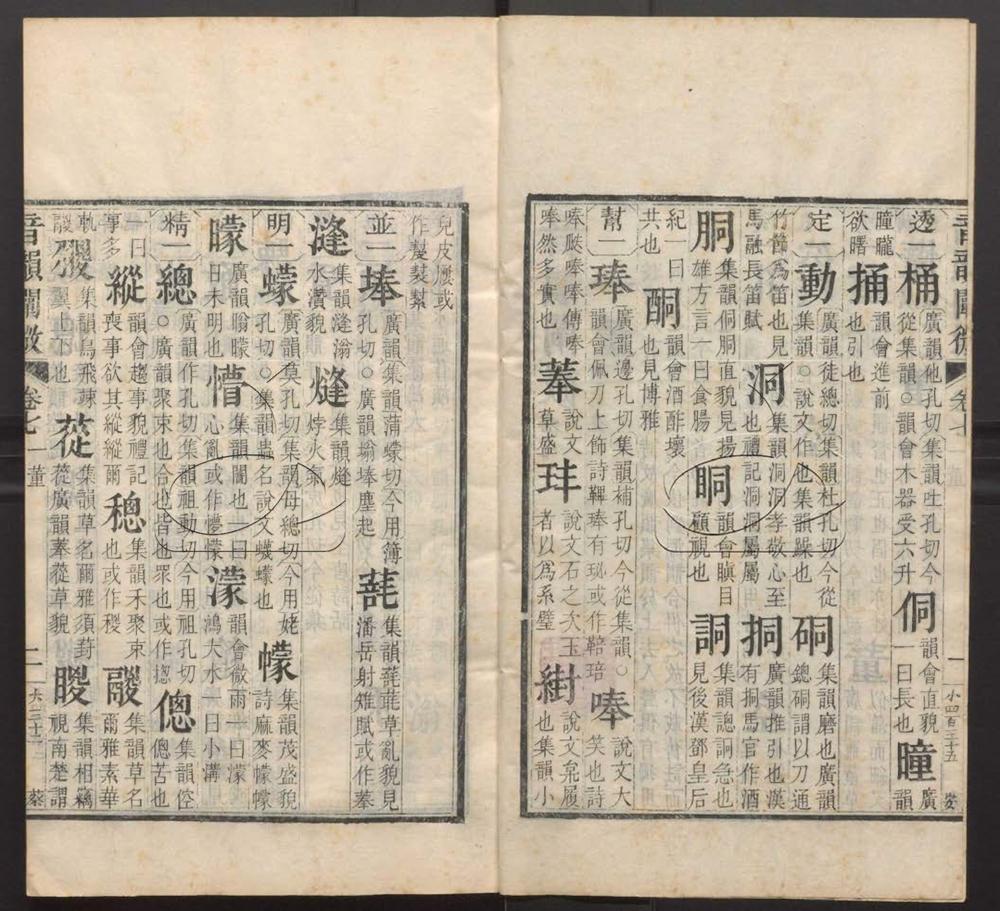 音韻闡微 卷七 一董 一 小四百三十五
透一桶廣韻他孔切集韻吐孔切今從集韻○韻會木器受六升侗韻會直貌一曰長也曈廣韻
曈曨欲曙也捅韻會進前也引也
定一動廣韻徒總切集韻杜孔切今從集韻○說文作也集韻躁也硐集韻磨也廣韻鏓硐謂以刀通
竹節為笛也見馬融長笛賦洞集韻洞洞孝敬心至也禮記洞洞屬屬挏廣韻推引也漢有挏馬官作酒
胴集韻侗胴直貌見揚雄方言一曰食腸眮韻會瞋目顧視也詷集韻諰詷急也見後漢鄧皇后
紀一曰共也酮韻會酒酢壞也見博雅
幫一琫廣韻邊孔切集韻補孔切今從集韻○韻會佩刀上飾詩鞸琫有珌或作鞛琣唪說文大笑也詩
瓞唪唪傳唪唪然多實也菶說文草盛玤說文石之次玉者以為系璧說文枲履也集韻小
兒皮屨或作
並一埲廣韻集韻蒲蠓切今用簿孔切○廣韻塕埲塵起集韻草亂貌見潘岳射雉賦或作菶
漨集韻漨滃水濆貌熢集韻熢㶿火氣
明一蠓廣韻莫孔切集韻母總切今用姥孔切○集韻蟲名說文蠛蠓也幪集韻茂盛貌詩麻麥幪幪
矇廣韻瞈矇日未明也懵集韻心亂或作懜懞濛韻會微雨一曰濛鴻大水一曰小溝
精一總廣韻作孔切集韻祖動切今用祖孔切○廣韻聚束也合也皆也眾也或作揔傯集韻倥傯苦也
一曰事多縱韻會趨事貌禮記喪事欲其縱縱爾稯集韻禾聚束也或作㯶集韻草名爾雅素華
軌集韻鳥飛竦翼上下也蓯集韻草名爾雅須葑蓯廣韻菶蓯草貌䁓集韻相竊視南楚謂
音韻闡微 卷七 一董 二